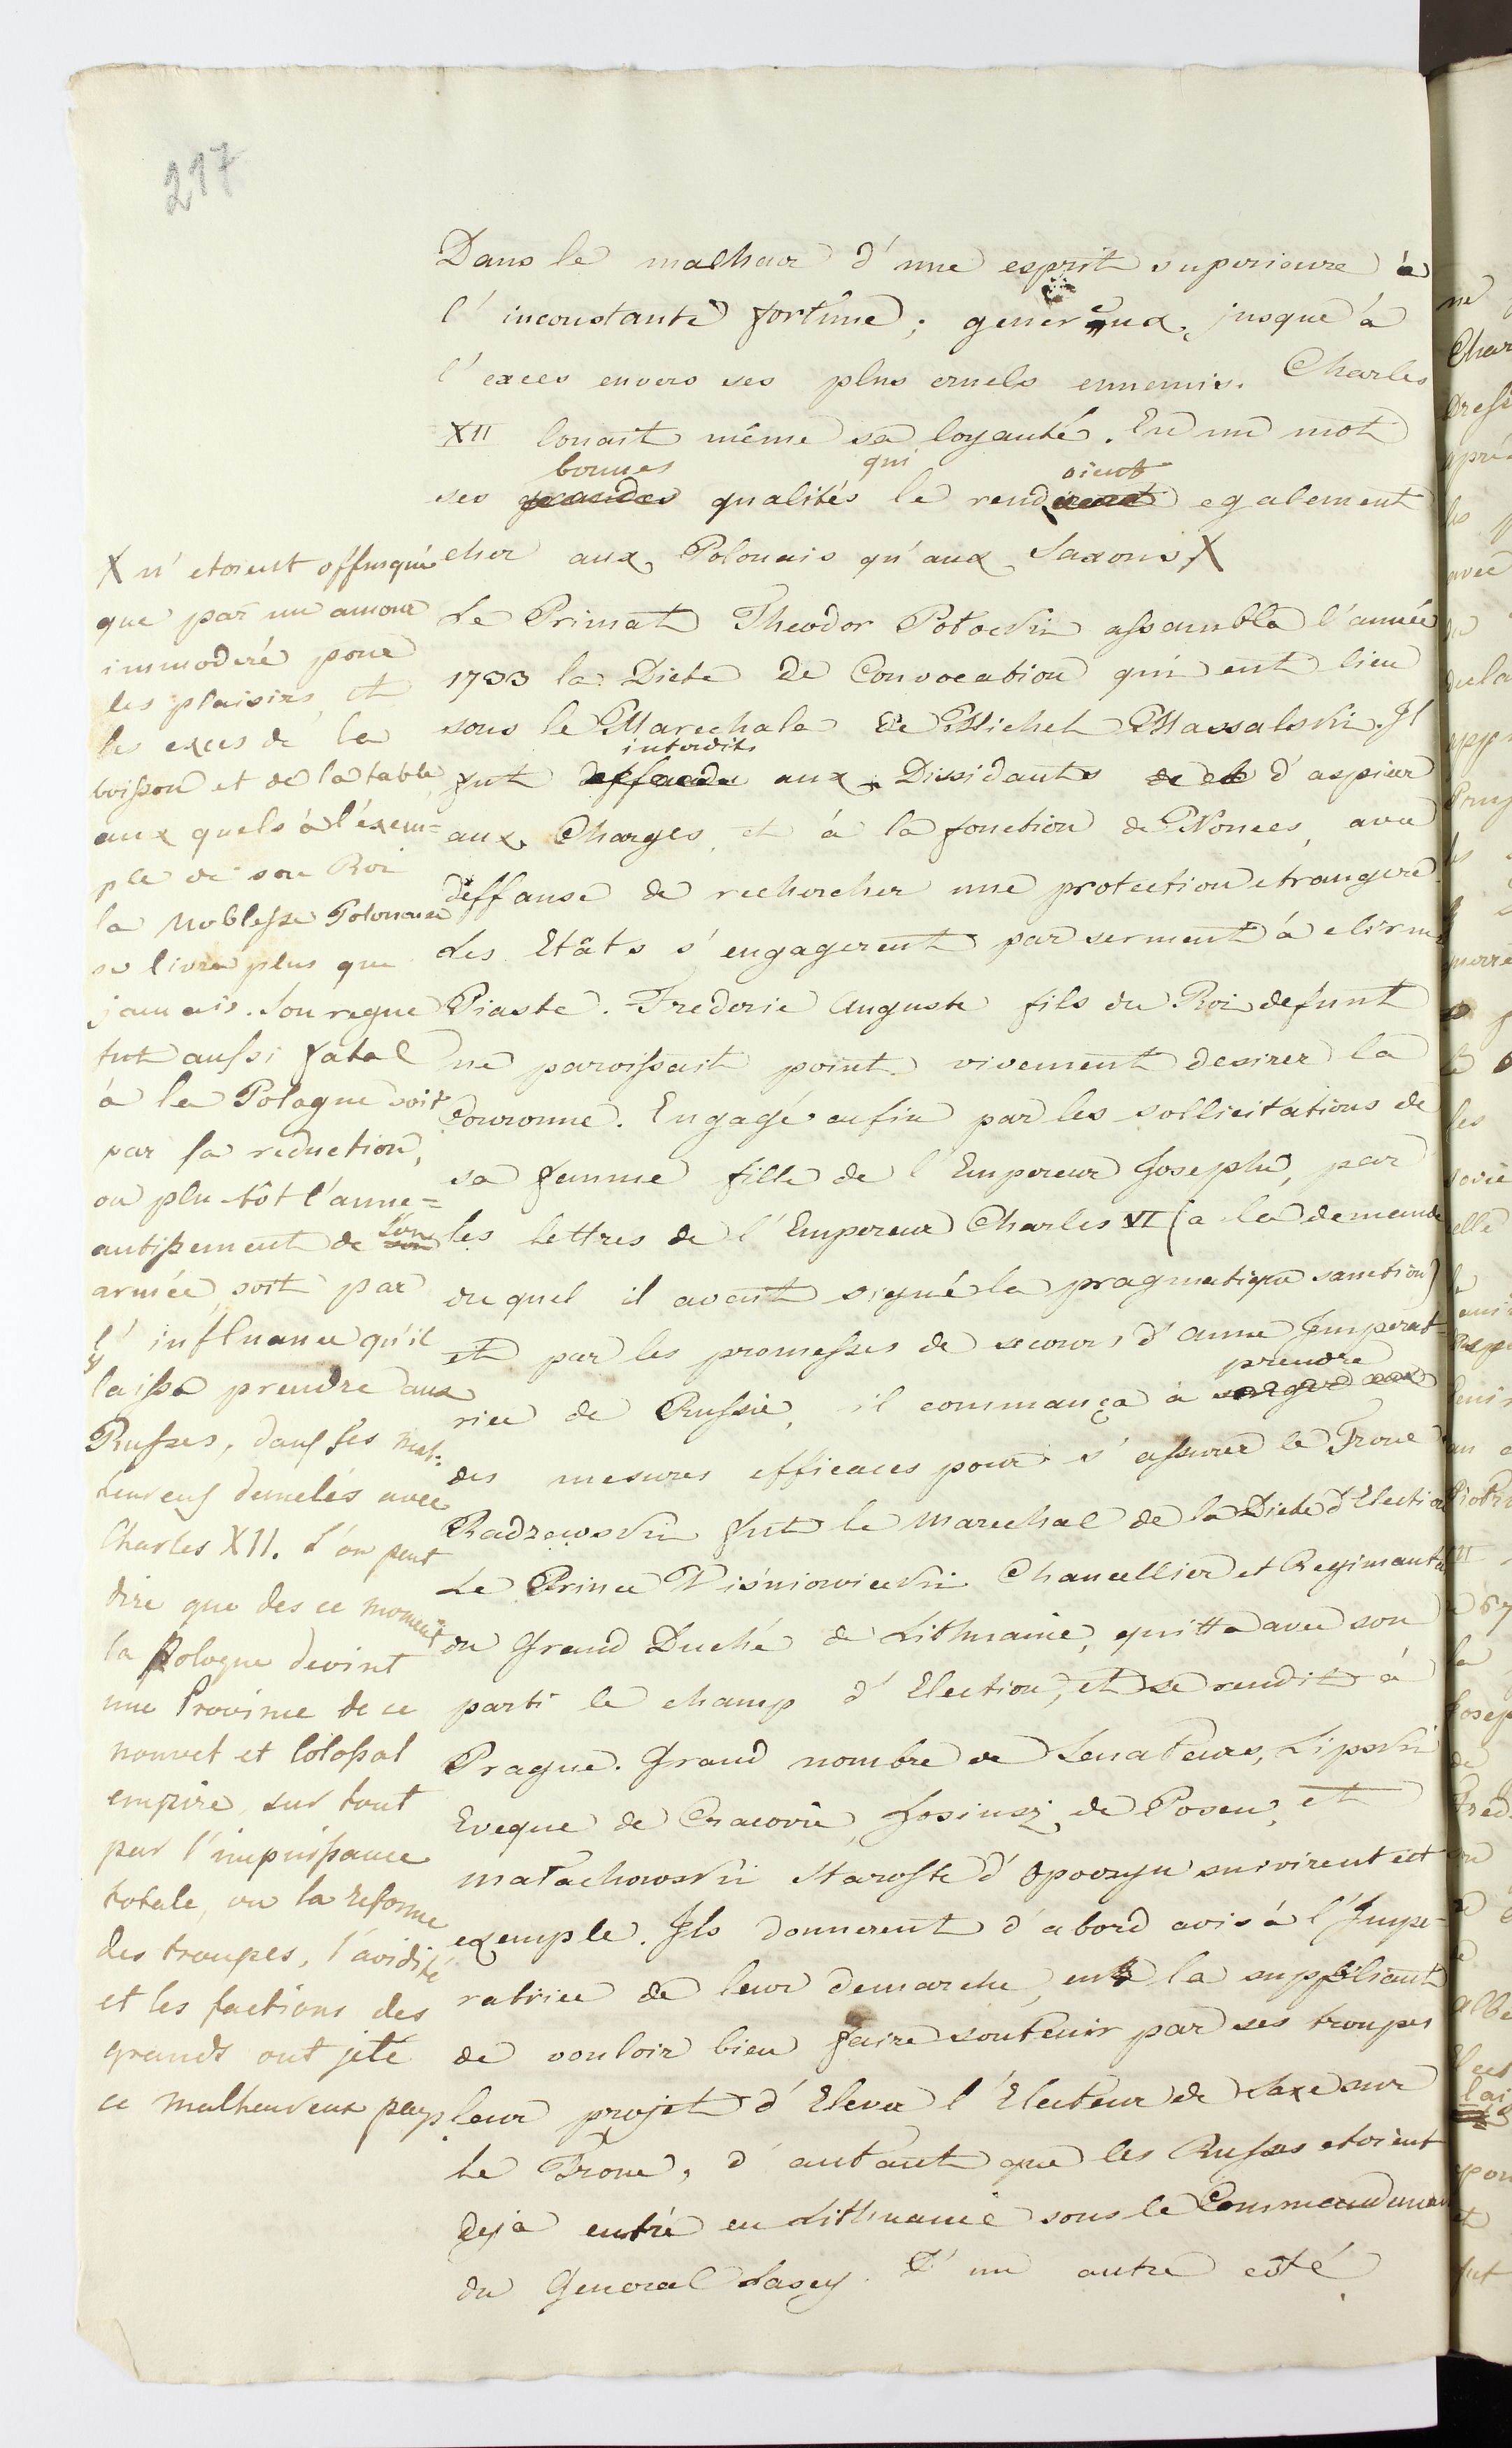 217
Dans le malheur d'une esprit superieure à
l'inconstante fortune; genereux, jusque à
l'exces envers ses plus cruels ennemis. Charles
XII louait même sa loyauté. En un mot
bonnes qui oient
ses grandes qualités le rendirent egalement
cher aux Polonais qu'aux Saxons X
Le Primat Theodor Potockii assembla l'année
1733 la Diete de Convocation qui eut lieu
sous le Marechale de Michel Massalskii. Il
interdits
fut deffendu aux Dissidants d'aspirer
aux Charges, et à la fonction de Nonces, avec
deffanse de rechercher une protection etrangere
Les Etâts s'engagerent par serment à elir un
Piaste. Frederic Auguste fils du Roi defunt
ne paroissait point vivement desirer la
Couronne. Engagé enfin par les sollicitations de
sa femme fille de l'Empereur Josephe, par
les lettres de l'Empereur Charles VI (a la demande
du quel il avait signé la pragmatique sanction)
et par les promesses de secours d'Anne Imperat-
prendre
rice de Russie, il commança à
des mesures efficaces pour s'assurer le Trone
Radzewskii fut le Marechal de la Diete d'Election
Le Prince Wiśniowieckii Chancellier et Regimanta
du Grand Duché de Lithuanie, quitta avec son
parti le champ d'Election, et se rendit à
Prague. Grand nombre de Senateurs, Lipskii
Eveque de Cracovie, Hosiusz de Posen, et
Małachowskii Staroste d'Opoczyn suivirent cet
exemple. Ils donnerent d'abord avis à l'Impe-
ratrice de leur demarche, en la suppliant
de vouloir bien faire soutenir par ses troupes
leur projet d'Elever l'Electeur de Saxe sur
le Trone, d'autant que les Russes etoient
deja entré en Lithuanie sous le Commandement
du General Lascy. D'un autre côté
X n'etoient offusqué
que par un amour
immoderé pour
les plaisirs, et
les exces de la
boisson et de la table
aux quels à l'exem=
ple de son Roi
la Noblesse Polonaise
se livra plus que
jamais. Son regne
fut aussi fatal
à la Pologne soit
par sa reduction,
ou plu-tôt l'anne=
son
antissement de son
armée, soit par
l'influance qu'il
y
laissa prendre aux
Russes, dans ses mal-
heureux demelés avec
Charles XII. L'on peut
dire que des ce moment
la Pologne devint
une Province de ce
nouvel et Colossal
empire, sur tout
par l'impuissance
totale, ou la reforme
des troupes, l'avidité
et les factions des
grands ont jeté
ce malheureux pays.